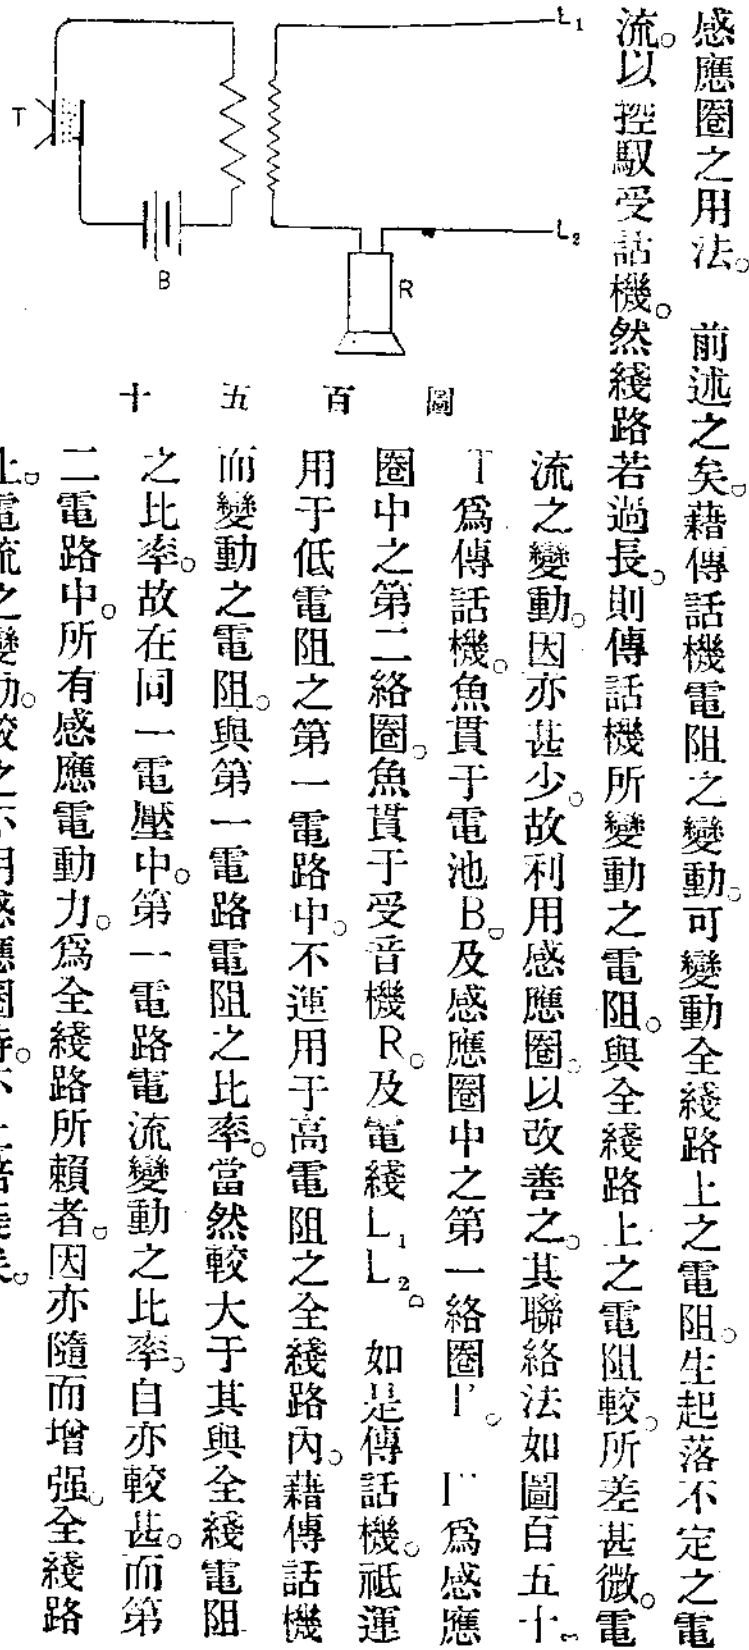 感應圈之用法。　前述之矣。藉傳話機電阻之變動。可變動全綫路上之電阻。生起落不定之電
流。以控馭受話機。然綫路若過長。則傳話機所變動之電阻。與全綫路上之電阻較。所差甚微。電
流之變動。因亦甚少。故利用感應圈。以改善之。其聯絡法如圖百五十。
T爲傳話機。魚貫于電池B。及感應圈中之第一絡圈。爲感應
圈中之第二絡圈。魚貫于受音機R。及電綫L₁L₂。　如是傳話機。祗運
用于低電阻之第一電路中。不運用于高電阻之全綫路內。藉傳話機
而變動之電阻。與第一電路電阻之比率。當然較大于其與全綫電阻
之比率。故在同一電壓中。第一電路電流變動之比率。自亦較甚。而第
二電路中。所有感應電動力。爲全綫路所賴者。因亦隨而增强。全綫路
上。電流之變動。較之不用感應圈時。不
圖百五十
T
B
R
L₁
L₂